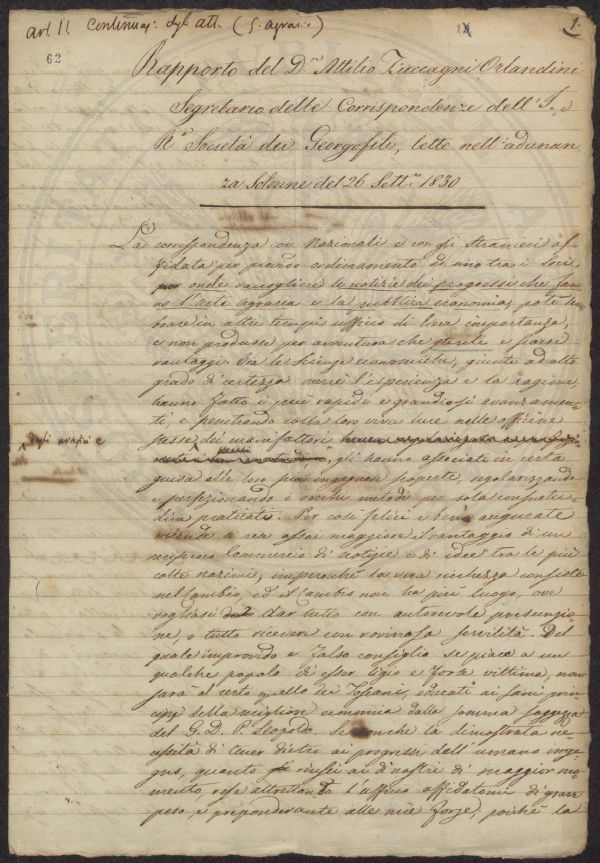 art. 11. Continuaz. degl. att. (S. Agrarie)
1.
62
Rapporto del D.re Attilio Zuccagni Orlandini
Segretario delle Corrispondenze dell' I. e
R.a Società dei Georgofili, letto nell'adunan
za Solenne del 26 Sett.e 1830
La corrispondenza coi Nazionali e con gli Stranieri af-
fidata per provido ordinamento ad uno tra i Soci,
per onde raccogliere le notizie dei progressi che fan-
no l'arte agraria e la pubblica economia, potè
in altri tempi ufficio di lieve importanza,
e non produsse per avventura che tardi e scarsi
vantaggi. Ora le Scienze economiche, giunte ad alto
grado di certezza mercè l'esperienza e la ragione
hanno fatto i più rapidi e grandiosi avanzamen-
ti, e penetrando colla loro viva luce nelle officine
stesse dei manifattori
degli artisti e
gli hanno associati in certa
guida alle loro più ingegnose scoperte, regolarizzando
e perfezionando i metodi per sola consuetu-
dine praticati. Per così felici e bene augurate
vicende si rese assai maggiore il vantaggio di un
reciproco Commercio di notizie e di idee tra le più
colte nazioni, imperocchè la vera ricchezza consiste
nel Cambio, ed il Cambio non ha più luogo, ove
vogliasi dar tutto con autorevole presunzio-
ne, o tutto ricevere con rovinosa servilità. Del
quale improvido e falso consiglio se piace a un
qualche popolo di esser ligio e forse vittima, non
sarà al certo quello dei Toscani, educati ai sani prin-
cipj della migliore economia dalla somma saggezza
del G. D. P. Leopoldo. Se non che la dimostrata ne-
cessità di tener dietro ai progressi dell'umano inge-
gno, quanto riuscì ai dì nostri di maggior mo-
mento, rese altrettanto l'ufficio affidatomi di grave
peso, e preponderante alle mie forze, poichè la